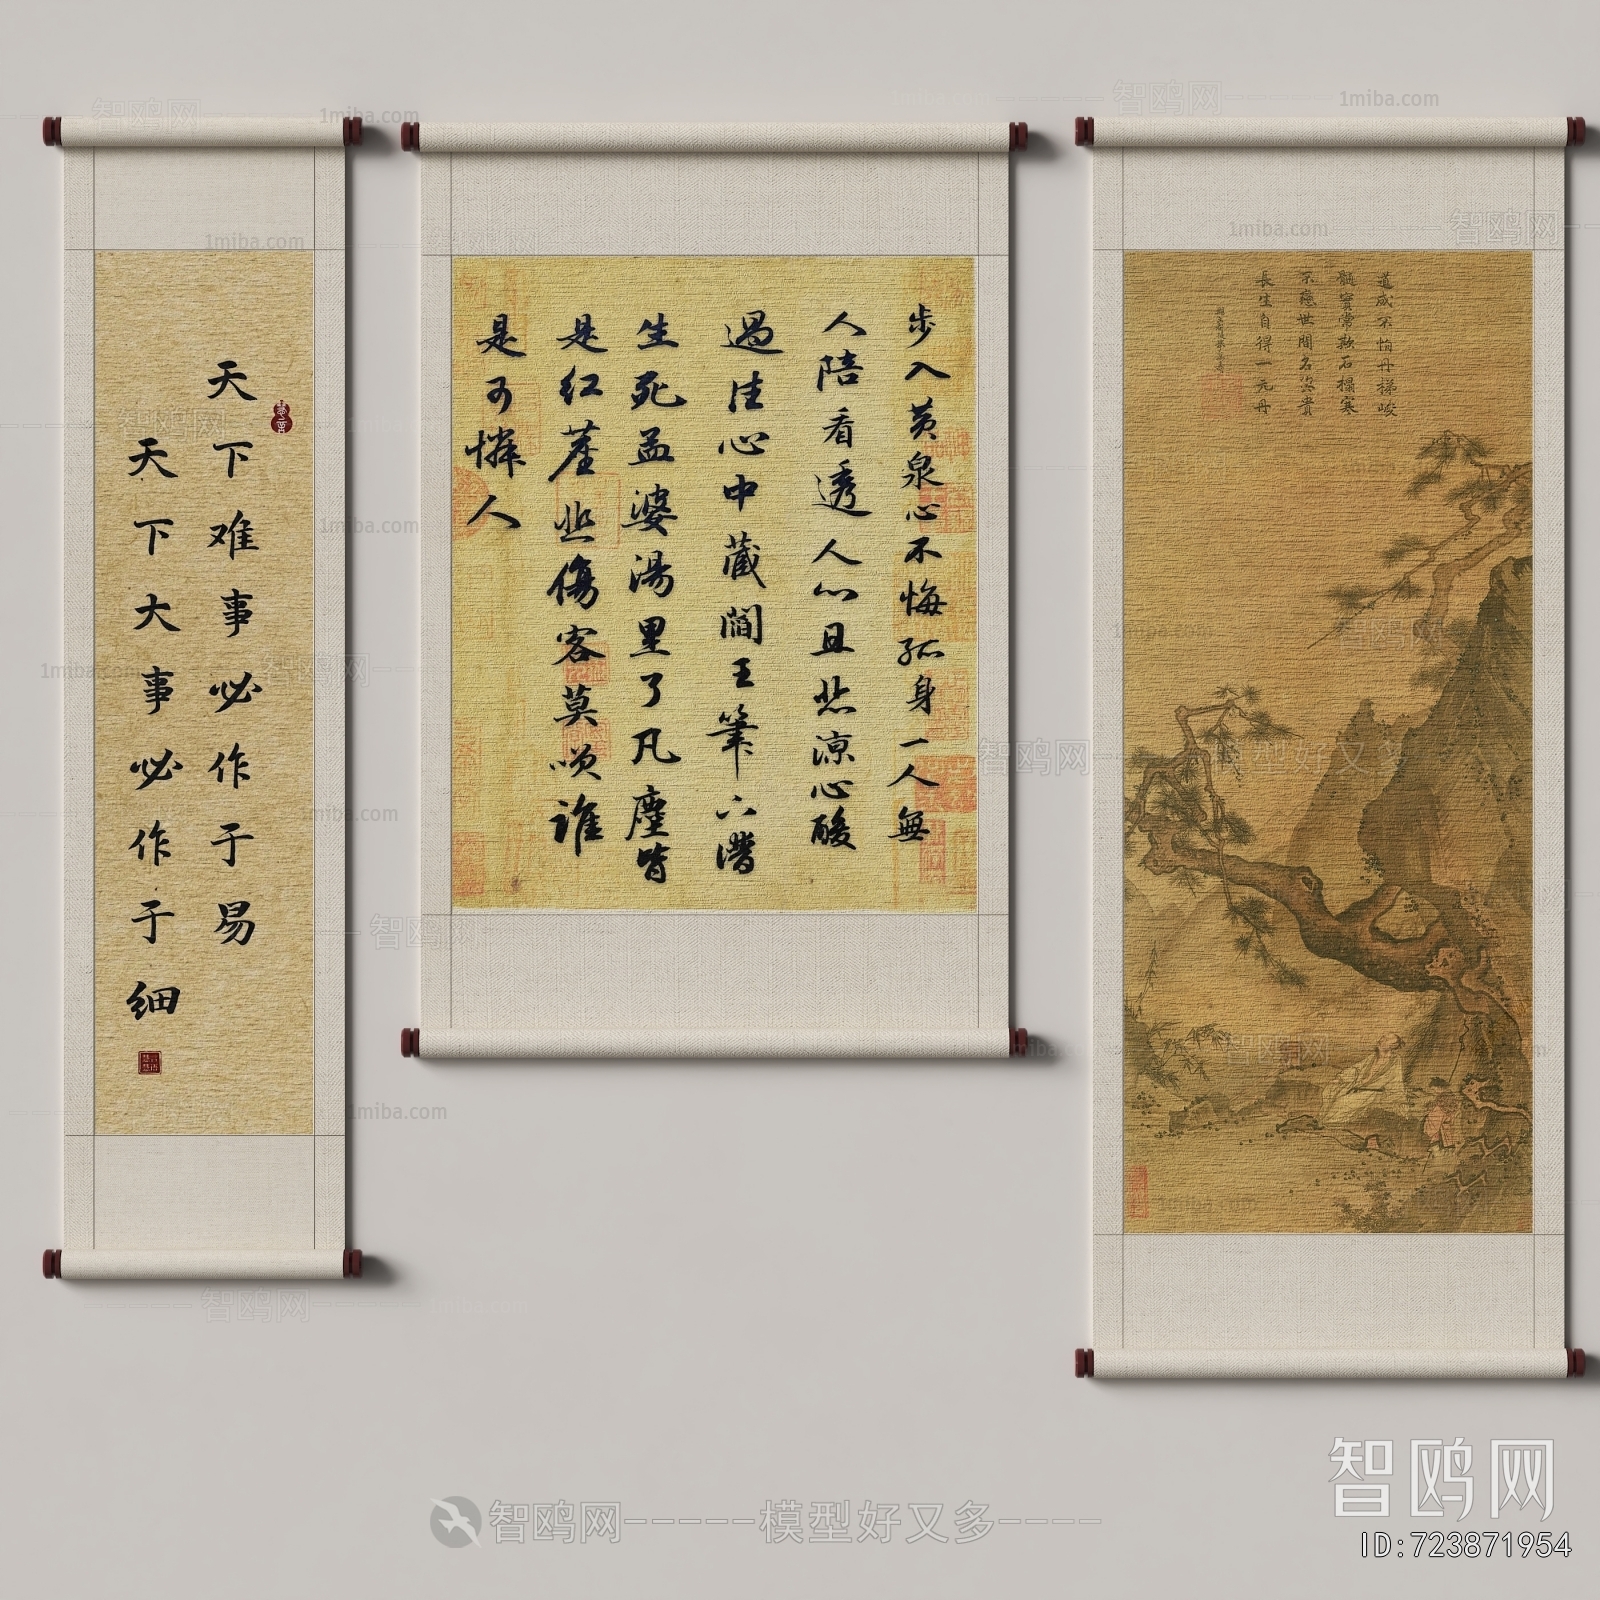 天下难事必作于易
天下大事必作于细
步入黄泉心不悔孤身一人無
人陪看透人心且悲涼心酸
過往心中藏閻王筆下潛
生死孟婆湯里了凡塵皆
是红塵悲傷客莫唤誰
是可憐人
道成不怕丹梯峻
髓實常欺石榻寒
不戀世間名與貴
長生自得一元丹
智鸥网
1miba.com
智鸥网-----模型好又多----
智鸥网
ID:723871954